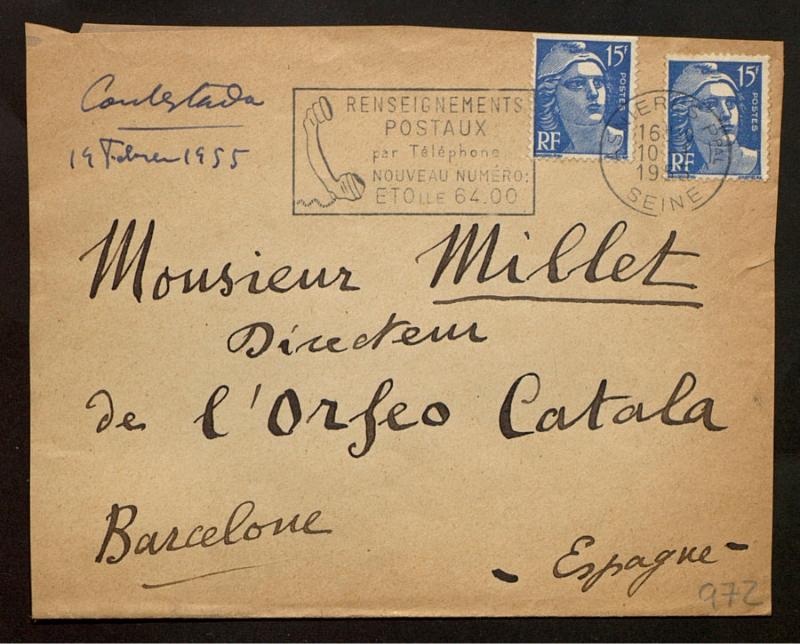 Contestada
19 Febrer 1955
RENSEIGNEMENTS
POSTAUX
par Téléphone
NOUVEAU NUMÉRO:
ETOILE 64.00
15F
POSTES
RF
15F
POSTES
RF
16
10
SEINE
Monsieur Millet
Directeur
de l'Orfeo Catala
Barcelone
- Espagne -
972